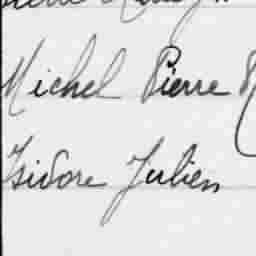 Michel Pierre
Isidore Julien